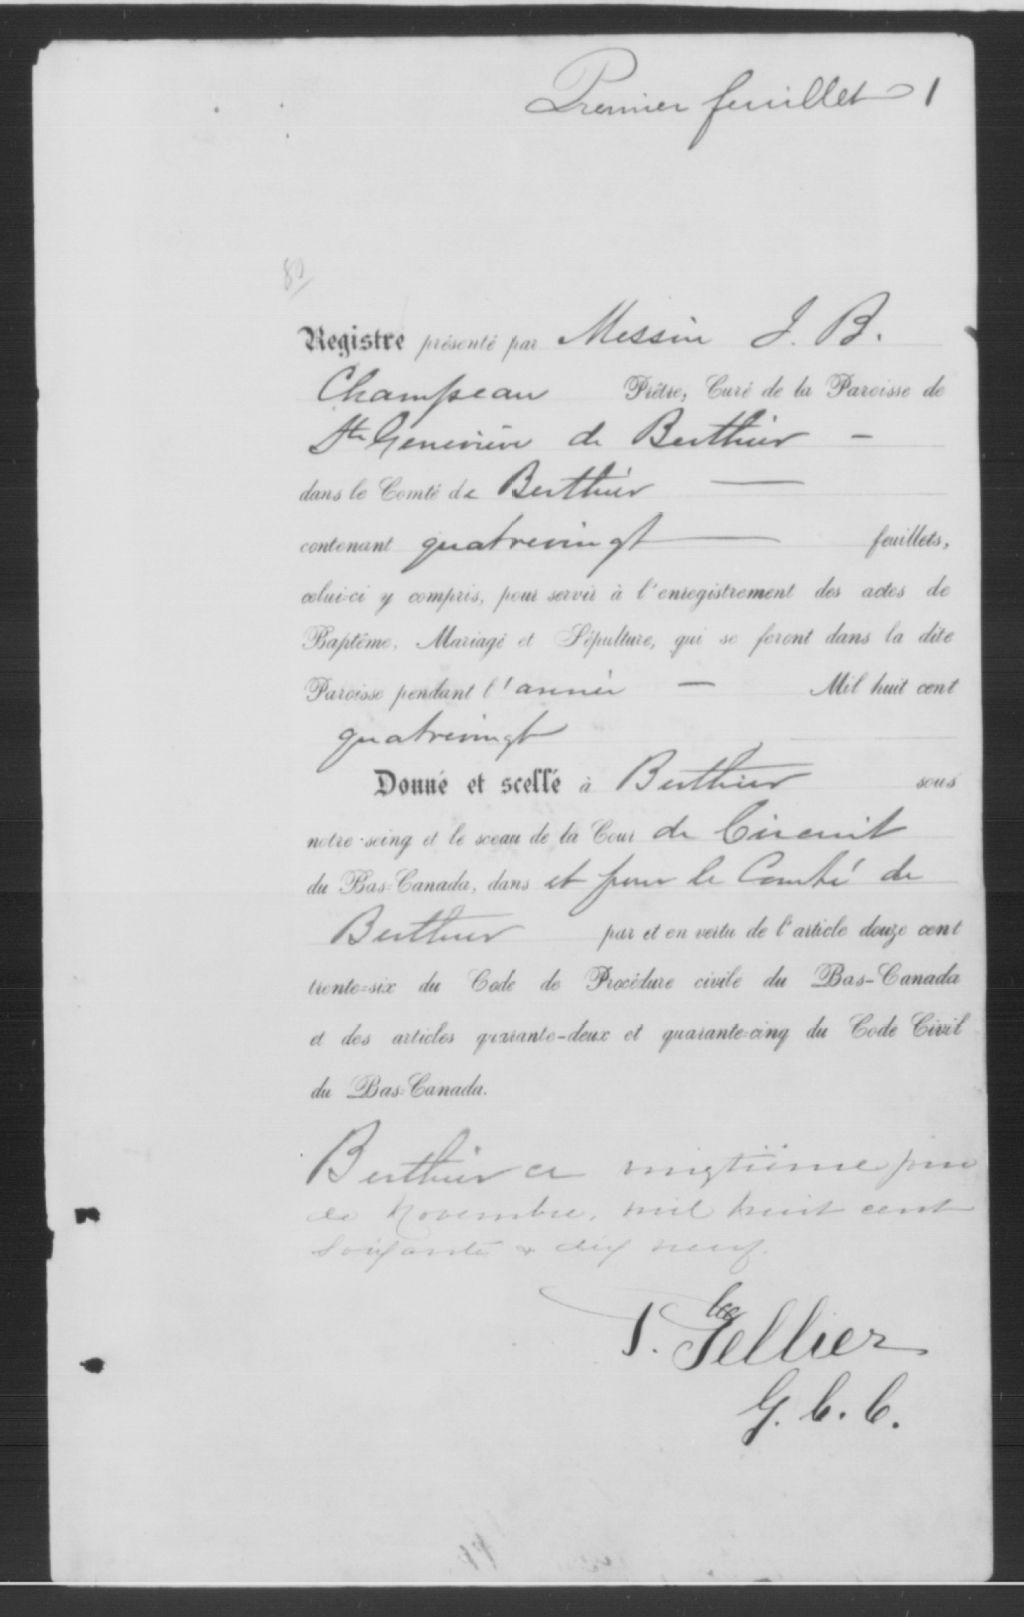 Premier feuillet 1
80
Registre présenté par Messire J. B.
Champeau Prêtre, Curé de la Paroisse de
Ste Geneviève de Berthier –
dans le Comté de Berthier —
contenant quatrevingt — feuillets,
celui-ci y compris, pour servir à l'enregistrement des actes de
Baptême, Mariage et Sépulture, qui se feront dans la dite
Paroisse pendant l'année – Mil huit cent
quatrevingt
Donné et scellé à Berthier sous
notre seing et le sceau de la Cour de Circuit
du Bas-Canada, dans et pour le Comté de
Berthier par et en vertu de l'article douze cent
trente-six du Code de Procédure civile du Bas-Canada
et des articles quarante-deux et quarante-cinq du Code Civil
du Bas-Canada.
Berthier ce vingtième jour
de Novembre, mil huit cent
soixante & dix neuf.
Tellier
G. C. C.